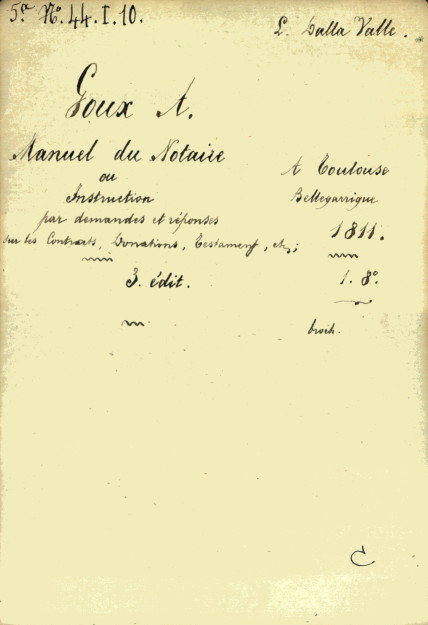 5.a No. 44.I.10.
L. Dalla Valle.
Goux A.
Manuel du Notaire
ou
Instruction
par demandes et réponses
sur les Contrats, Donations, Testament, etc;
3. édit.
A Toulouse
Bellegarrigue
1811.
1. 8o
broch.
C